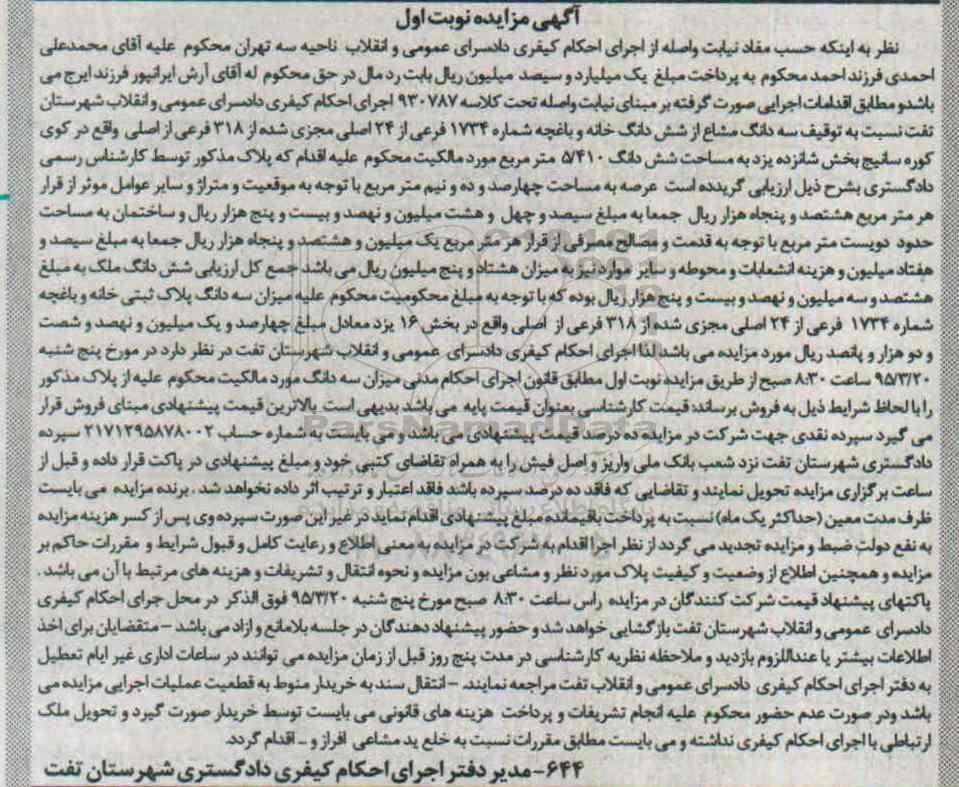 آگهی مزایده نوبت اول
نظر به اینکه حسب مفاد نیابت واصله از اجرای احکام کیفری دادسرای عمومی و انقلاب ناحیه سه تهران محکوم علیه آقای محمدعلی
احمدی فرزند احمد محکوم به پرداخت مبلغ یک میلیارد و سیصد میلیون ریال بابت رد مال در حق محکوم له آقای آرش ایرانپور فرزند ایرج می
باشد و مطابق اقدامات اجرایی صورت گرفته بر مبنای نیابت واصله تحت کلاسه ۹۳۰۷۸۷ اجرای احکام کیفری دادسرای عمومی و انقلاب شهرستان
تفت نسبت به توقیف سه دانگ مشاع از شش دانگ خانه و باغچه شماره ۱۷۳۴ فرعی از ۲۴ اصلی مجزی شده از ۳۱۸ فرعی از اصلی واقع در کوی
کوره سانیج بخش شانزده یزد به مساحت شش دانگ ۵/۴۱۰ متر مربع مورد مالکیت محکوم علیه اقدام که پلاک مذکور توسط کارشناس رسمی
دادگستری بشرح ذیل ارزیابی گریدده است عرصه به مساحت چهارصد و ده و نیم متر مربع با توجه به موقعیت و متراژ و سایر عوامل موثر از قرار
هر متر مربع هشتصد و پنجاه هزار ریال جمعا به مبلغ سیصد و چهل و هشت میلیون و نهصد و بیست و پنج هزار ریال و ساختمان به مساحت
حدود دویست متر مربع با توجه به قدمت و مصالح مصرفی از قرار هر متر مربع یک میلیون و هشتصد و پنجاه هزار ریال جمعا به مبلغ سیصد و
هفتاد میلیون و هزینه انشعابات و محوطه و سایر موارد نیز به میزان هشتاد و پنج میلیون ریال می باشد جمع کل ارزیابی شش دانگ ملک به مبلغ
هشتصد و سه میلیون و نهصد و بیست و پنج هزار ریال بوده که با توجه به مبلغ محکومیت محکوم علیه میزان سه دانگ پلاک ثبتی خانه و باغچه
شماره ۱۷۳۴ فرعی از ۲۴ اصلی مجزی شده از ۳۱۸ فرعی از اصلی واقع در بخش ۱۶ یزد معادل مبلغ چهارصد و یک میلیون و نهصد و شصت
و دو هزار و پانصد ریال مورد مزایده می باشد لذا اجرای احکام کیفری دادسرای عمومی و انقلاب شهرستان تفت در نظر دارد در مورخ پنج شنبه
۹۵/۳/۲۰ ساعت ۸:۳۰ صبح از طریق مزایده نوبت اول مطابق قانون اجرای احکام مدنی میزان سه دانگ مورد مالکیت محکوم علیه از پلاک مذکور
را با لحاظ شرایط ذیل به فروش برساند: قیمت کارشناسی بعنوان قیمت پایه می باشد بدیهی است بالاترین قیمت پیشنهادی مبنای فروش قرار
می گیرد سپرده نقدی جهت شرکت در مزایده ده درصد قیمت پیشنهادی می باشد و می بایست به شماره حساب ۲۱۷۱۲۹۵۸۷۸۰۰۲ سپرده
دادگستری شهرستان تفت نزد شعب بانک ملی واریز و اصل فیش را به همراه تقاضای کتبی خود و مبلغ پیشنهادی در پاکت قرار داده و قبل از
ساعت برگزاری مزایده تحویل نمایند و تقاضایی که فاقد ده درصد سپرده باشد فاقد اعتبار و ترتیب اثر داده نخواهد شد . برنده مزایده می بایست
ظرف مدت معین (حداکثر یک ماه) نسبت به پرداخت باقیمانده مبلغ پیشنهادی اقدام نماید در غیر این صورت سپرده وی پس از کسر هزینه مزایده
به نفع دولت ضبط و مزایده تجدید می گردد از نظر اجرا اقدام به شرکت در مزایده به معنی اطلاع و رعایت کامل و قبول شرایط و مقررات حاکم بر
مزایده و همچنین اطلاع از وضعیت و کیفیت پلاک مورد نظر و مشاعی بون مزایده و نحوه انتقال و تشریفات و هزینه های مرتبط با آن می باشد .
پاکتهای پیشنهاد قیمت شرکت کنندگان در مزایده راس ساعت ۸:۳۰ صبح مورخ پنج شنبه ۹۵/۳/۲۰ فوق الذکر در محل جرای احکام کیفری
دادسرای عمومی و انقلاب شهرستان تفت بازگشایی خواهد شد و حضور پیشنهاد دهندگان در جلسه بلامانع و ازاد می باشد – متقضایان برای اخذ
اطلاعات بیشتر یا عنداللزوم بازدید و ملاحظه نظریه کارشناسی در مدت پنج روز قبل از زمان مزایده می توانند در ساعات اداری غیر ایام تعطیل
به دفتر اجرای احکام کیفری دادسرای عمومی و انقلاب تفت مراجعه نمایند. – انتقال سند به خریدار منوط به قطعیت عملیات اجرایی مزایده می
باشد ودر صورت عدم حضور محکوم علیه انجام تشریفات و پرداخت هزینه های قانونی می بایست توسط خریدار صورت گیرد و تحویل ملک
ارتباطی با اجرای احکام کیفری نداشته و می بایست مطابق مقررات نسبت به خلع ید مشاعی افراز و ... اقدام گردد.
۶۴۴-مدیر دفتر اجرای احکام کیفری دادگستری شهرستان تفت
ParsNamadData